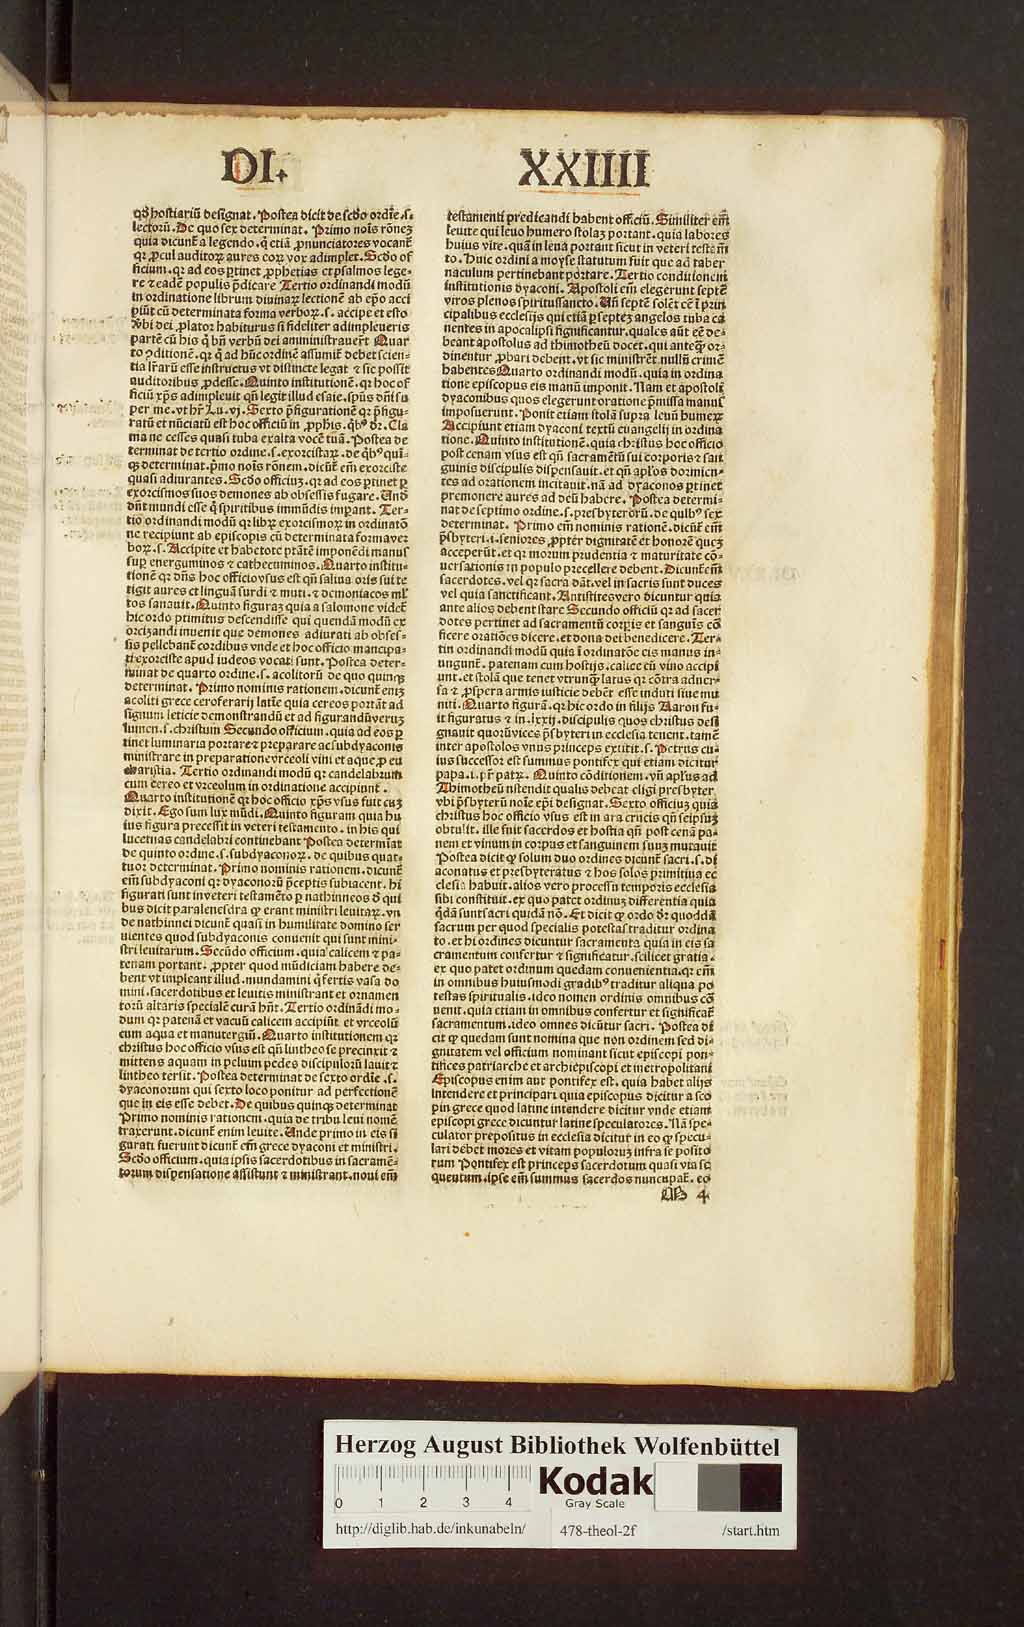 DI.
XXIIII
qđ hostiariũ designat. Postea dicit de scďo ordĩe .s.
lectorũ. De quo sex determinat. Primo noĩs rõnez
quia dicunt̃ a legendo. q̃ etiã ꝓnunciatores vocant̃
qꝛ ꝓcul auditoꝝ aures eoꝝ vox adimplet. Scďo of
ficium. qꝛ ad eos ꝑtinet ꝓphetias et psalmos lege⸗
re ⁊ eadẽ populis p̃dicare Tertio ordinandi modũ
in ordinatione librum diuinaꝝ lectionẽ ab ep̃o acci
piũt cũ determinata forma verboꝝ .s. accipe et esto
v̾bi dei ꝓlator habiturus si fideliter adimpleueris
partẽ cũ his q̃ bñ verbũ dei amministrauerũt Quar
to ꝯditionẽ. qꝛ q̃ ad hũc ordinẽ assumit̃ debet scien⸗
tia lr̃arũ esse instructus vt distincte legat ⁊ sic possit
auditoribus ꝓdesse. Quinto institutionẽ. qꝛ hoc of
ficiũ xp̃s adimpleuit qñ legit illud esaie. sp̃us dñi su
per me. vt hr̃ Lu. vj. Sexto p̃figurationẽ qꝛ p̃figu⸗
ratũ et nũciatũ est hoc officiũ in ꝓphis. qb⁹ dr̃. Cla
ma ne cesses quasi tuba exalta vocẽ tuã. Postea de
terminat de tertio ordine .s. exorcistaꝝ. de qb⁹ qui⸗
qꝫ determinat. p̃mo noĩs rõnem. dicunt̃ em̃ exorciste
quasi adiurantes. Scďo officiuz. qꝛ ad eos ꝑtinet ꝑ
exorcismos suos demones ab obsessis fugare. Und̃
dñt mundi esse q̃ spiritibus immũdis imperant. Ter⸗
tio ordinandi modũ qꝛ libꝝ exorcismoꝝ in ordinatõ
ne recipiunt ab episcopis cũ determinata forma ver
boꝝ .s. Accipite et habetote ptãtẽ imponẽdi manus
suꝑ energuminos ⁊ cathecuminos. Quarto institu⸗
tionẽ qꝛ dñs hoc officio vsus est qñ saliua oris sui te
tigit aures et linguã surdi ⁊ muti. ⁊ demoniacos ml̃
tos sanauit. Quinto figuraz quia a salomone videt̃
hic ordo primitus descendisse qui quendã modũ ex
orcizandi inuenit que demones adiurati ab obses⸗
sis pellebant̃ cordibus vnde et hoc officio mancipa⸗
ti exorciste apud iudeos vocati sunt. Postea deter⸗
minat de quarto ordine .s. acolitorũ de quo quinqꝫ
determinat. Primo nominis rationem. dicunt̃ eniz
acoliti grece ceroferarij latĩe quia cereos portãt ad
signum leticie demonstrandũ et ad figurandũ veruz
lumen .s. christum Secundo officium. quia ad eos ꝑ
tinet luminaria portare ⁊ preparare ac subdyaconis
ministrare in preparatione vrceoli vini et aque ꝓ eu
charistia. Tertio ordinandi modũ qꝛ candelabrum
cum cereo et vrceolum in ordinatione accipiunt.
Quarto institutionẽ qꝛ hoc officio xp̃s vsus fuit cuz
dixit. Ego sum lux mũdi. Quinto figuram quia hu
ius figura precessit in veteri testamento. in his qui
lucernas candelabri continebant Postea determĩat
de quinto ordine .s. subdyaconoꝝ. de quibus quat⸗
tuor determinat. Primo nominis rationem. dicunt̃
em̃ subdyaconi qꝛ dyaconorũ p̃ceptis subiacent. hi
figurati sunt in veteri testamẽto ꝑ nathinneos đ qui
bus dicit̃ paralenesdra ꝙ erant ministri leuitaꝝ. vn̄
de nathinnei dicunt̃ quasi in humilitate domino ser
uientes quod subdyaconis conuenit qui sunt mini⸗
stri leuitarum. Secũdo officium. quia calicem ⁊ pa⸗
tenam portant. ꝓpter quod mũdiciam habere de⸗
bent vt impleant illud. mundamini q̃ fertis vasa do
mini. sacerdotibus et leuitis ministrant et ornamen
torũ altaris specialẽ curã hñt. Tertio ordinãdi mo⸗
dum qꝛ patenã et vacuũ calicem accipiũt et vrceolũ
cum aqua et manutergiũ. Quarto institutionem qꝛ
christus hoc officio vsus est qñ lintheo se precinxit ⁊
mittens aquam in peluim pedes discipulorũ lauit ⁊
lintheo tersit. Postea determinat de sexto ordĩe .s.
dyaconorum qui sexto loco ponitur ad perfectionẽ
que in eis esse debet. De quibus quinqꝫ determinat
Primo nominis rationem. quia de tribu leui nomẽ
traxerunt. dicunt̃ enim leuite. Unde primo in eis fi
gurati fuerunt dicunt̃ em̃ grece dyaconi et ministri.
Scďo officium. quia ipsis sacerdotibus in sacramẽ⸗
torum dispensatione assistunt ⁊ ministrant. noui em̃
testamenti predicandi habent officiũ. Similiter em̃
leuite qui leuo humero stolaz portant. quia labores
huius vite. quã in leua portant sicut in veteri testam̃
to. Huic ordini a moyse statutum fuit que ad taber
naculum pertinebant portare. Tertio conditionem
institutionis dyaconi. Apostoli em̃ elegerunt septẽ
viros plenos spiritussancto. Uñ septẽ solẽt eẽ ĩ prin
cipalibus ecclesijs qui etiã ꝑ septez angelos tuba ca
nentes in apocalipsi significantur. quales aũt eẽ de⸗
beant apostolus ad thimotheũ docet. qui anteqꝫ or⸗
dinentur ꝓbari debent. vt sic ministrẽt nullũ crimẽ
habentes Quarto ordinandi modũ. quia in ordina
tione episcopus eis manũ imponit. Nam et apostoli
dyaconibus quos elegerunt oratione p̃missa manus
imposuerunt. Ponit etiam stolã supra leuũ humeꝝ
Accipiunt etiam dyaconi textũ euangelij in ordina
tione. Quinto institutionẽ. quia christus hoc officio
post cenam vsus est qñ sacramẽtũ sui corporis ⁊ san
guinis discipulis dispensauit. et qñ apl̃os dormien⸗
tes ad orationem incitauit. nã ad dyaconos ꝑtinet
premonere aures ad deũ habere. Postea determi⸗
nat de septimo ordine .s. presbyterorũ. de quib⁹ sex
determinat. Primo em̃ nominis rationẽ. dicũt̃ em̃
p̃sbyteri .i. seniores ꝓpter dignitatẽ et honorẽ quez
acceperũt. et qꝛ morum prudentia ⁊ maturitate cõ⸗
uersationis in populo precellere debent. Dicunt̃ em̃
sacerdotes. vel qꝛ sacra dãt. vel in sacris sunt duces
vel quia sanctificant. Antistites vero dicuntur quia
ante alios debent stare Secundo officiũ qꝛ ad sacer
dotes pertinet ad sacramentũ corpis et sanguis cõ
ficere oratiões dicere. et dona dei benedicere. Ter⸗
tin ordinandi modũ quia ĩ ordinatõe eis manus in⸗
ungunt̃. patenam cum hostijs. calicẽ cũ vino accipi
unt. et stolã que tenet vtrunqꝫ latus qꝛ cõtra aduer⸗
sa ⁊ ꝓspera armis iusticie debẽt esse induti siue mu
niti. Quarto figurã. qꝛ hic ordo in filijs Aaron fu⸗
it figuratus ⁊ in .lxxij. discipulis quos christus desi
gnauit quorũ vices p̃sbyteri in ecclesia tenent. tamẽ
inter apostolos vnus princeps extitit .s. Petrus cu⸗
ius successor est summus pontifex qui etiam dicitur
papa .i. pr̃ patꝝ. Quinto cõditionem. vñ apl̃us ad
Thimotheũ nstendit qualis debeat eligi presbyter
vbi p̃sbyterũ noĩe ep̃i designat. Sexto officiuz quia
christus hoc officio vsus est in ara crucis qñ seipsuz
obtulit. ille fuit sacerdos et hostia qñ post cenã pa⸗
nem et vinum in corpus et sanguinem suuz mutauit
Postea dicit ꝙ solum duo ordines dicunt̃ sacri .s. di
aconatus et presbyteratus ⁊ hos solos primitiua ec
clesia habuit. alios vero processu temporis ecclesia
sibi constituit. ex quo patet ordinuz differentia quia
q̃dã sunt sacri quidã nõ. Et dicit ꝙ ordo dr̃ quoddã
sacrum per quod specialis potestas traditur ordina
to. et hi ordines dicuntur sacramenta quia in eis sa
cramentum confertur ⁊ significatur. scilicet gratia.
ex quo patet ordinum quedam conuenientia. qꝛ em̃
in omnibus huiusmodi gradib⁹ traditur aliqua po
testas spiritualis. ideo nomen ordinis omnibus cõ
uenit. quia etiam in omnibus confertur et significat̃
sacramentum. ideo omnes dicũtur sacri. Postea di
cit ꝙ quedam sunt nomina que non ordinem sed di⸗
gnitatem vel officium nominant sicut episcopi pon⸗
tifices patriarche et archiepiscopi et metropolitani
Episcopus enim aut pontifex est. quia habet alijs
intendere et principari quia episcopus dicitur a sco
pin grece quod latine intendere dicitur vnde etiam
episcopi grece dicuntur latine speculatores. Nã spe⸗
culator prepositus in ecclesia dicitur in eo ꝙ specu⸗
lari debet mores et vitam populoruz infra se posito
rum Pontifex est princeps sacerdotum quasi via se
quentum. ipse em̃ summus sacerdos nuncupat̃. eo
4
Herzog August Bibliothek Wolfenbüttel
0 1 2 3 4
Kodak
Gray Scale
http://diglib.hab.de/inkunabeln/ 478-theol-2f /start.htm